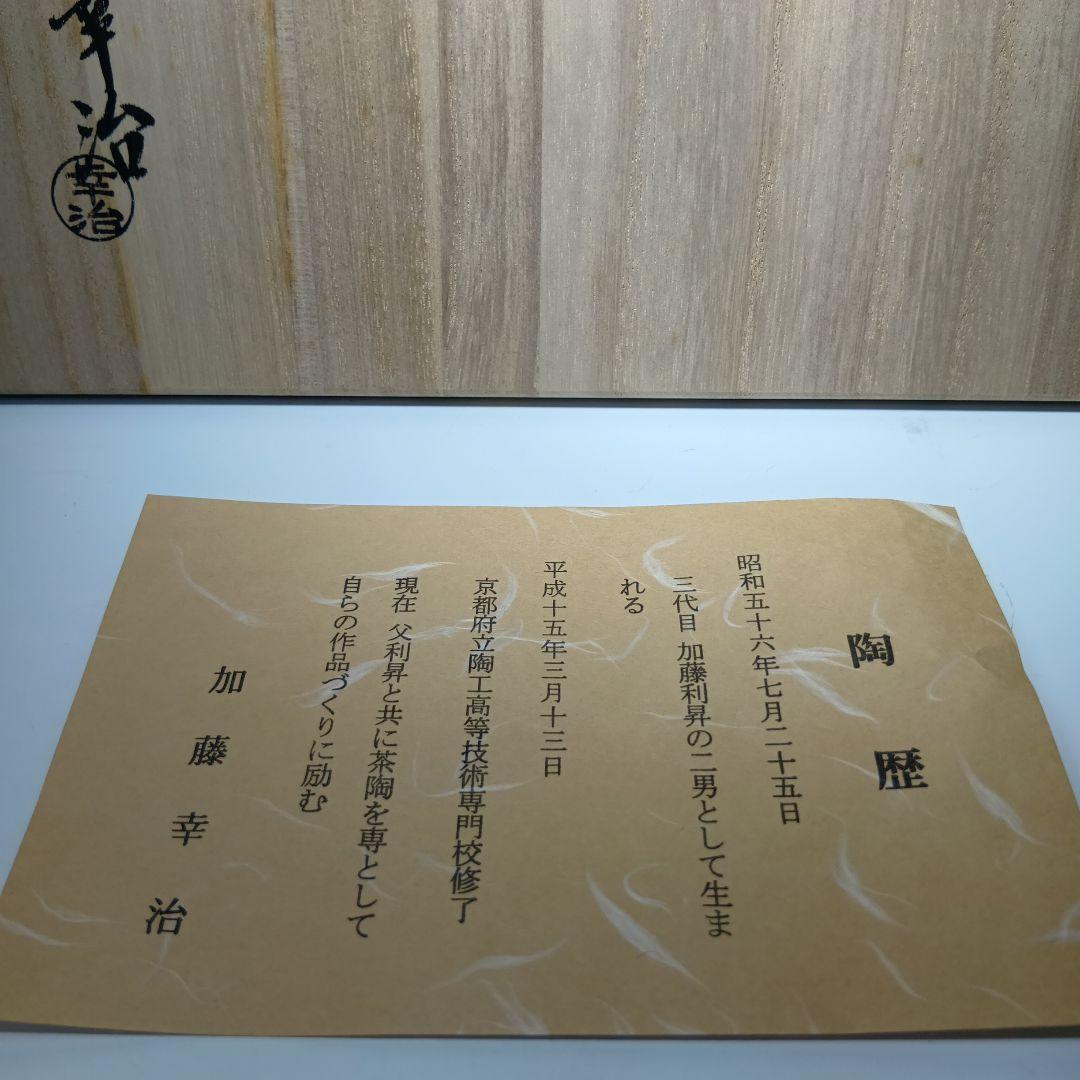 幸治
幸治
陶歴
昭和五十六年七月二十五日
三代目 加藤利昇の二男として生ま
れる
平成十五年三月十三日
京都府立陶工高等技術専門校修了
現在 父利昇と共に茶陶を専として
自らの作品づくりに励む
加藤幸治